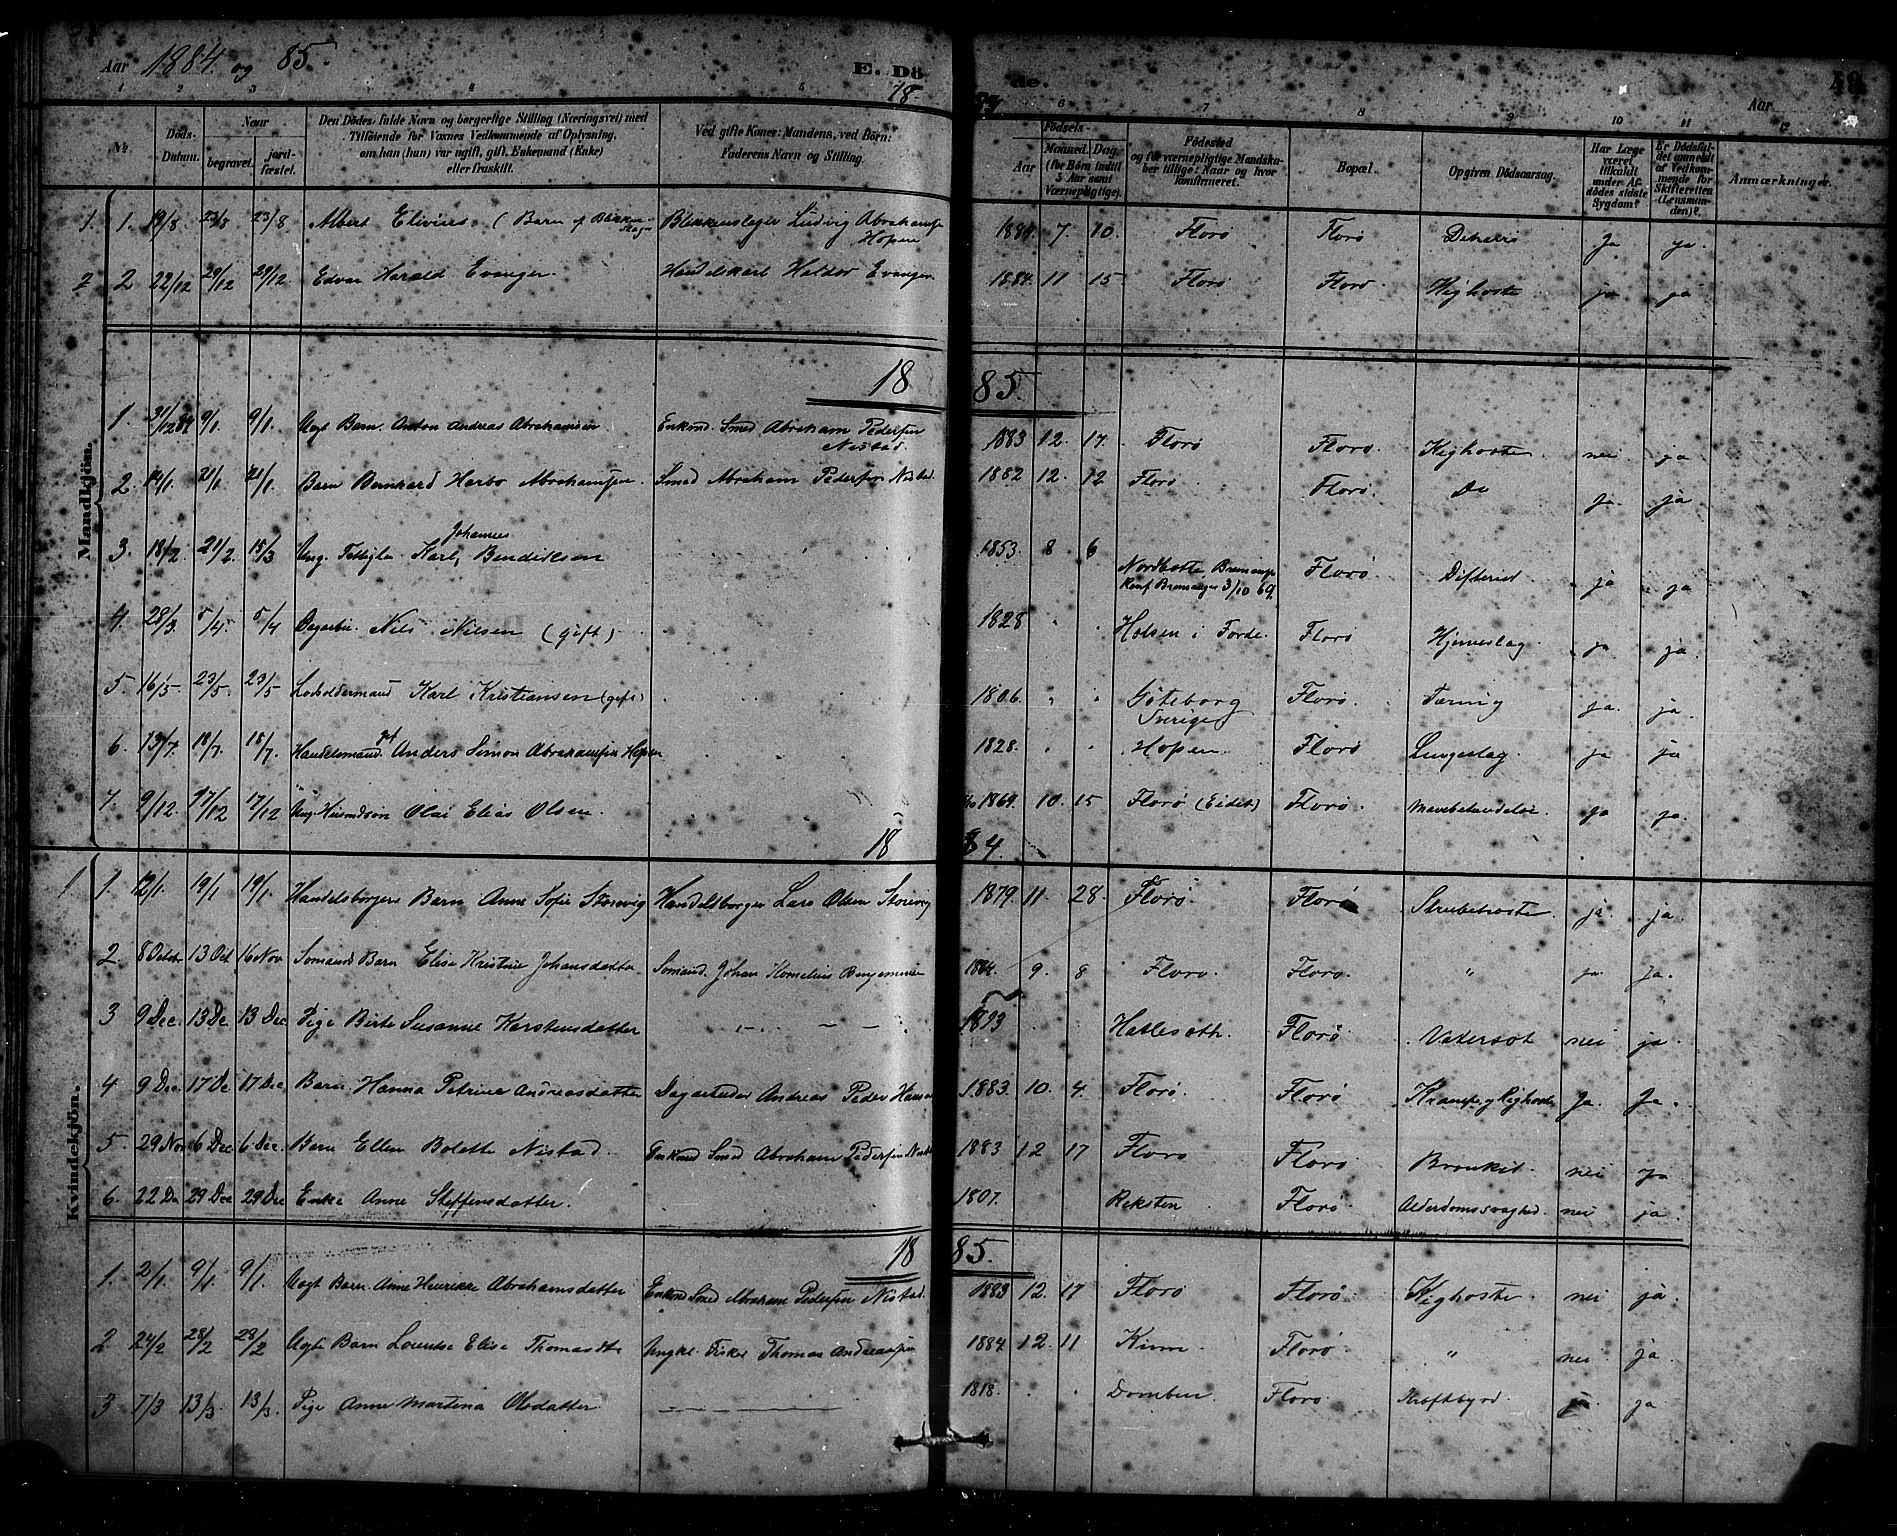 Aar 1884 og 85. E. Döde. 49
Aar
1 2 3 4 5 6 7 8 9 10 11 12
18 84
No. Döds-Datum. Naar begravet. jordfæstet. Den Dödes fulde Navn og borgerlige Stilling (Næringsvei) med Tilföiende for Voxnes Vedkommende af Oplysning, om han (hun) var ugift, gift, Enkemand (Enke) eller fraskilt. Ved gifte Koner: Mandens, ved Börn: Faderens Navn og Stilling. Födsels- Aar Maaned. Dag. (for Börn indtil 5 Aar samt Værnepligtige). Födested og for værnepligtige Mandskaber tillige: Naar og hvor konfirmeret. Bopæl. Opgiven Dödsaarsag. Har Læge været tilkaldt under Afdödes sidste Sygdom? Er Dödsfaldet anmeldt af Vedkommende for Skifteretten (Lensmanden)? Anmærkninger.
Mandkjön.
1. 1. 19/8 23/8 23/8 Albert Elivius (Barn af Blikkenslager Blikkenslager Ludvig Abrahamsen Hopen 1884 7. 10. Florø Florø Ja ja
2 2 22/12 29/12 29/12 Edvar Harald Evanger. Handelskarl Haldor Evanger. 1884. 11 15 Florø Florø Kighoste ja ja
18 85.
1. 31/12 84 9/1. 9/1. Uægt Barn. Anton Andreas Abrahamsen Enkmd. Smed Abraham Pedersen Nistad. 1883 12. 17. Florø Florø. Kighoste nei ja
2. 14/1. 21/1. 21/1. Barn Bernhard Herbo Abrahamsen. Smed Abraham Pedersen Nistad. 1882 12. 12 Florø Florø. Do ja ja
3. 18/2. 21/2. 15/3 Ung. Karl Johannes Bendiksen 1853. 8 6 Nordbotten Bremanger Konf Bremanger 3/10 69. Florø Difterit ja ja
4. 28/3. 5/4. 5/4 Dagarbr. Nils Nilsen (gift) 1828 Holsen i Førde. Florø Hjerneslag. ja ja
5. 16/5. 23/5. 23/5 Losoldermand Karl Kristiansen (gift) 1806. Göteborg Sverige Florø. Tæring ja. ja.
6. 13/7. 18/7. 18/7. Handelsmand gift Anders Simon Abrahamsen Hopen 1828. Hopen Florø Lungeslag ja ja
7. 9/12. 17/12 17/12 Ung. Husmdsøn Olai Elias Olsen. 1869. 10. 15 Florø (Eidet) Florø. Mavebetændelse ja ja.
18 84.
Kvindekjön.
1 1. 12/1. 19/1 19/1. Handelsborgers Barn Anne Sofie Storevig Handelsborger Lars Olsen Storevig 1879. 11. 28. Florø Florø Strubehoste. ja ja.
2 8 Octob 13 Oct 16 Nov Sømands Barn Elise Kristine Johansdatter Sømand. Johan Kornelius Benjaminsen 1884. 9. 8 Florø. Florø. " ja Ja.
3 9 Dec. 13 De 13 Dec Pige Birte Susanne Karstensdatter — — — 1893 Hatlesæth. Florø Vatersot nei ja.
4 9 Dec 17 De 17 Dec Barn Hanna Petrine Andreasdatter Dagarbeider Andreas Peder Hansen 1883. 10. 4. Florø. Florø Krampe, Kighoste Ja. Ja.
5. 29 Nov 6 Dec 6 Dec. Barn Ellen Bolette Nistad. Enkmd Smed Abraham Pedersen Nistad 1883 12 17 Florø Florø Bronkit. nei ja
6. 22 De 29 Dec 29 Dec Enke Anne Steffensdatter. 1807. Reksten Florø Alderdomssvaghed. nei ja.
18 85.
1. 2/1. 9/1 9/1. Uægt Barn Anne Henrikke Abrahamsdatter Enkmd Smed Abraham Pedersen Nistad. 1883 12. 17 Florø Florø. Kighoste. nei ja.
2 24/2 28/2 28/2 Uægte Barn Lovendse Elise Thomasdtr Ungkl. Fisker Thomas Andreassen 1884 12. 11 Kinn Florø " nei ja.
3 7/3 13/3. 13/3. Pige Anne Martina Olsdatter — — — 1818. Domben Florø. Kræftbyld. ja